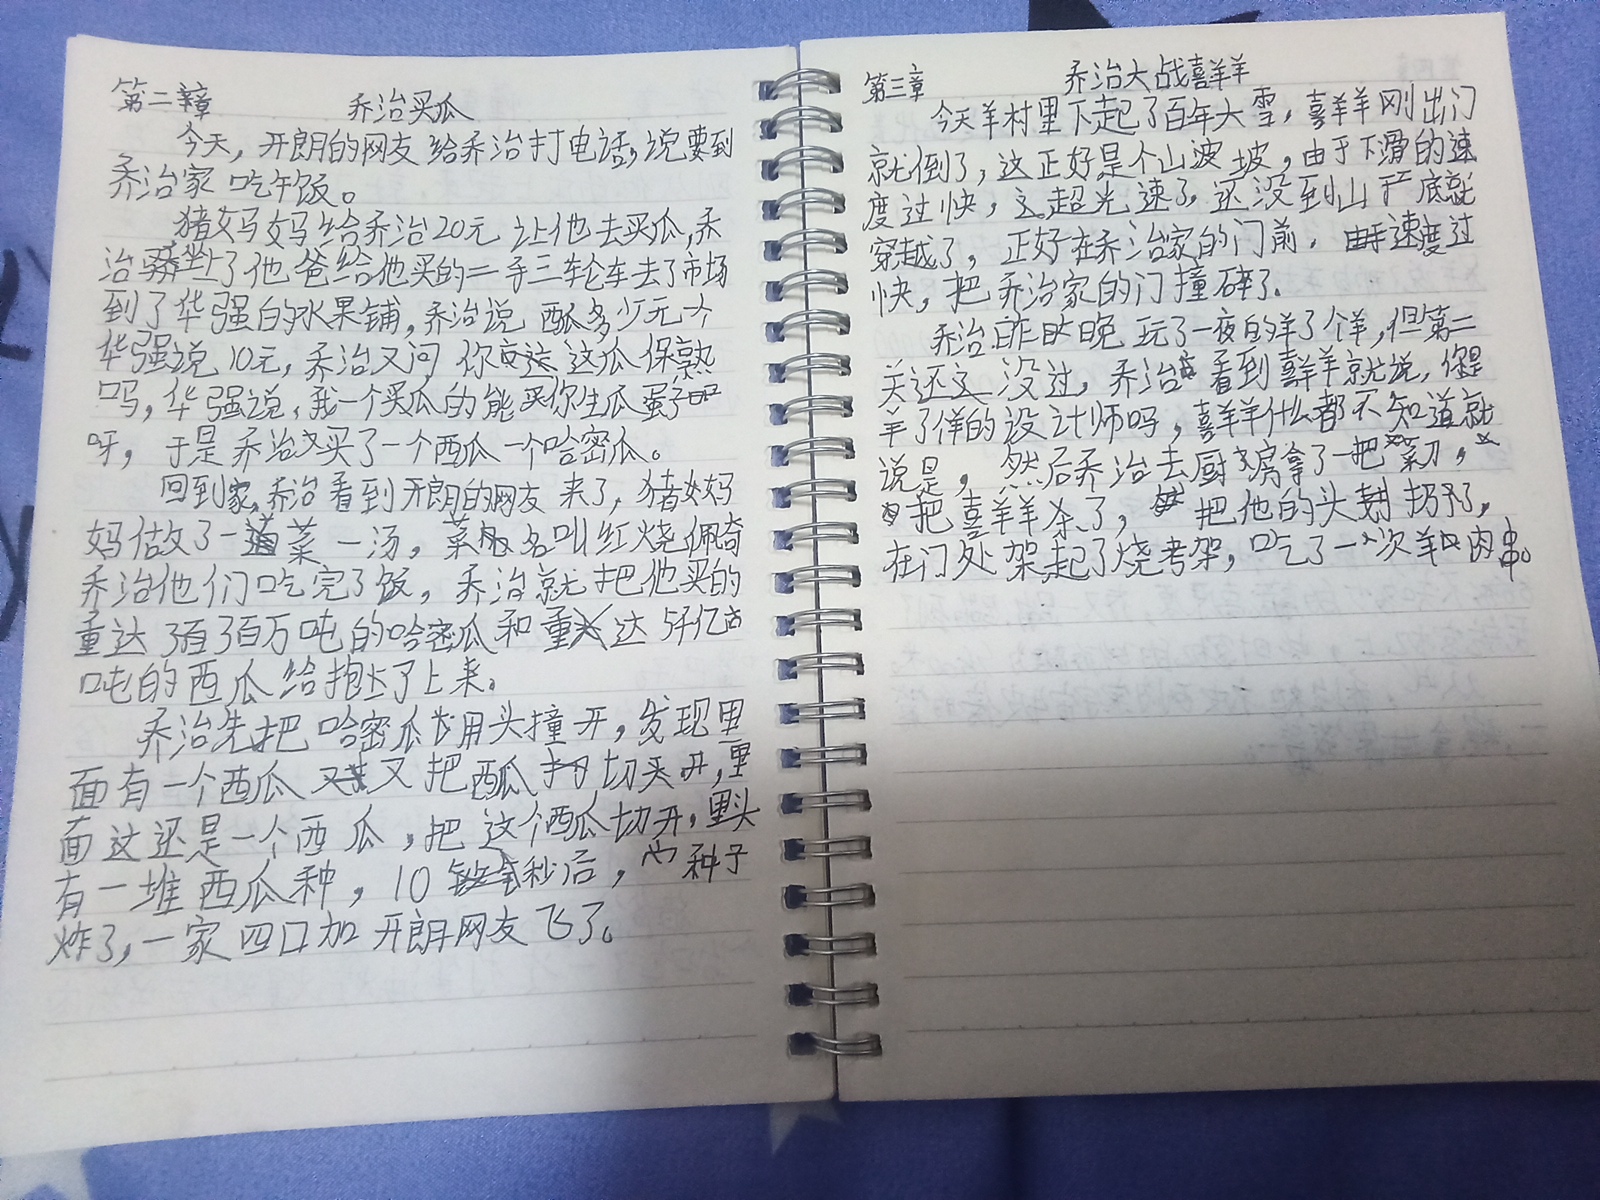 第二章 乔治买瓜
今天,开朗的网友给乔治打电话,说要到
乔治家吃午饭。
猪妈妈给乔治20元让他去买瓜,乔
治坐上了他爸给他买的二手三轮车去了市场
到了华强的水果铺,乔治说西瓜多少元一个
华强说10元,乔治又问你这瓜保熟
吗,华强说,我一个买瓜的能买你生瓜蛋子
呀,于是乔治买了一个西瓜一个哈密瓜。
回到家,乔治看到开朗的网友来了,猪妈
妈做了一道菜一汤,菜名叫红烧佩奇
乔治他们吃完了饭,乔治就把他买的
重达3百万吨的哈密瓜和重达5千亿
吨的西瓜给抱了上来。
乔治先把哈密瓜用头撞开,发现里
面有一个西瓜又把西瓜切开,里
面还是一个西瓜,把这个西瓜切开,里头
有一堆西瓜种,10秒后,种子
炸了,一家四口加开朗网友飞了。
第三章 乔治大战喜羊羊
今天羊村里下起了百年大雪,喜羊羊刚出门
就倒了,这正好是个山坡,由于下滑的速
度过快,超光速了,还没到山底就
穿越了,正好在乔治家的门前,由于速度过
快,把乔治家的门撞碎了。
乔治昨晚玩了一夜的羊了个羊,但第二
关还没过,乔治看到喜羊羊就说,你是
羊了个羊的设计师吗,喜羊羊什么都不知道就
说是,然后乔治去厨房拿了一把菜刀,
把喜羊羊杀了,把他的头扔了,
在门处架起了烧考架,吃了一次羊肉串。